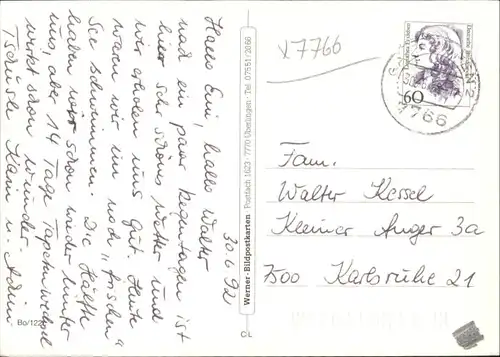 30.6.92
Hallo Emi, hallo Walter
nach ein paar Regentagen ist
hier sehr schönes Wetter und
wir erholen uns gut. Heute
waren wir im noch "frischen"
See schwimmen. Die Hälfte
haben wir schon wieder hinter
uns, aber 14 Tage Tapetenwechsel
wirkt schon wunder.
Tschüsle Karin u.
Bo/122
Werner-Bildpostkarten Postfach 1623 · 7770 Überlingen · Tel. 07551/2066
OL
x7766
60
7766
Fam.
Walter Kessel
Kleiner Anger 3a
7500 Karlsruhe 21